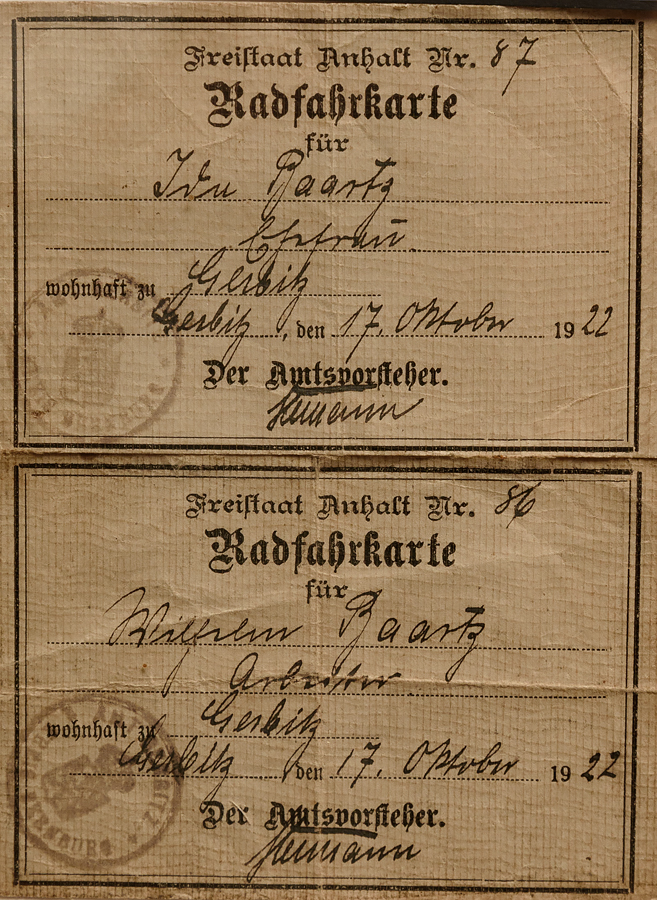 Freistaat Anhalt Nr. 87
Radfahrkarte
für
Ida Baartz
Ehefrau
wohnhaft zu Gerbitz
Gerbitz, den 17. Oktober 1922
Der Amtsvorsteher.
Freistaat Anhalt Nr. 86
Radfahrkarte
für
Wilhelm Baartz
Arbeiter
wohnhaft zu Gerbitz
Gerbitz, den 17. Oktober 1922
Der Amtsvorsteher.